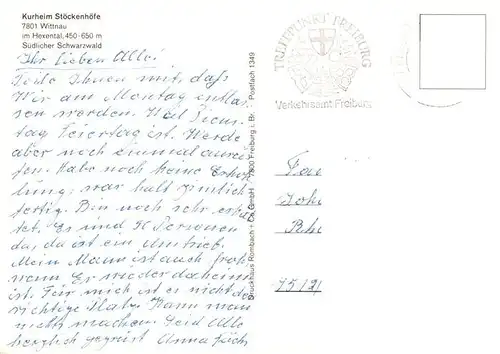 Kurheim Stöckenhöfe
7801 Wittnau
im Hexental, 450-650 m
Südlicher Schwarzwald
Ihr lieben Alle!
Teile Ihnen mit, daß
Wir am Montag entlas-
sen werden. Weil Diens-
tag Feiertag ist. Werde
aber noch einmal
Habe noch keine Erho-
lung; war halt ziemlich
fertig. Bin noch sehr
Es sind 90 Personen
da, da ist ein Umtrieb.
Mein Mann ist auch froh
wenn Er wieder daheim
ist. Für mich ist es nicht der
richtige Platz. Kann man
nicht machen. Seid Alle
herzlich gegrüßt Anna
Druckhaus Rombach + Co GmbH · 7800 Freiburg i. Br. · Postfach 1349
TREFFPUNKT FREIBURG
Verkehrsamt Freiburg